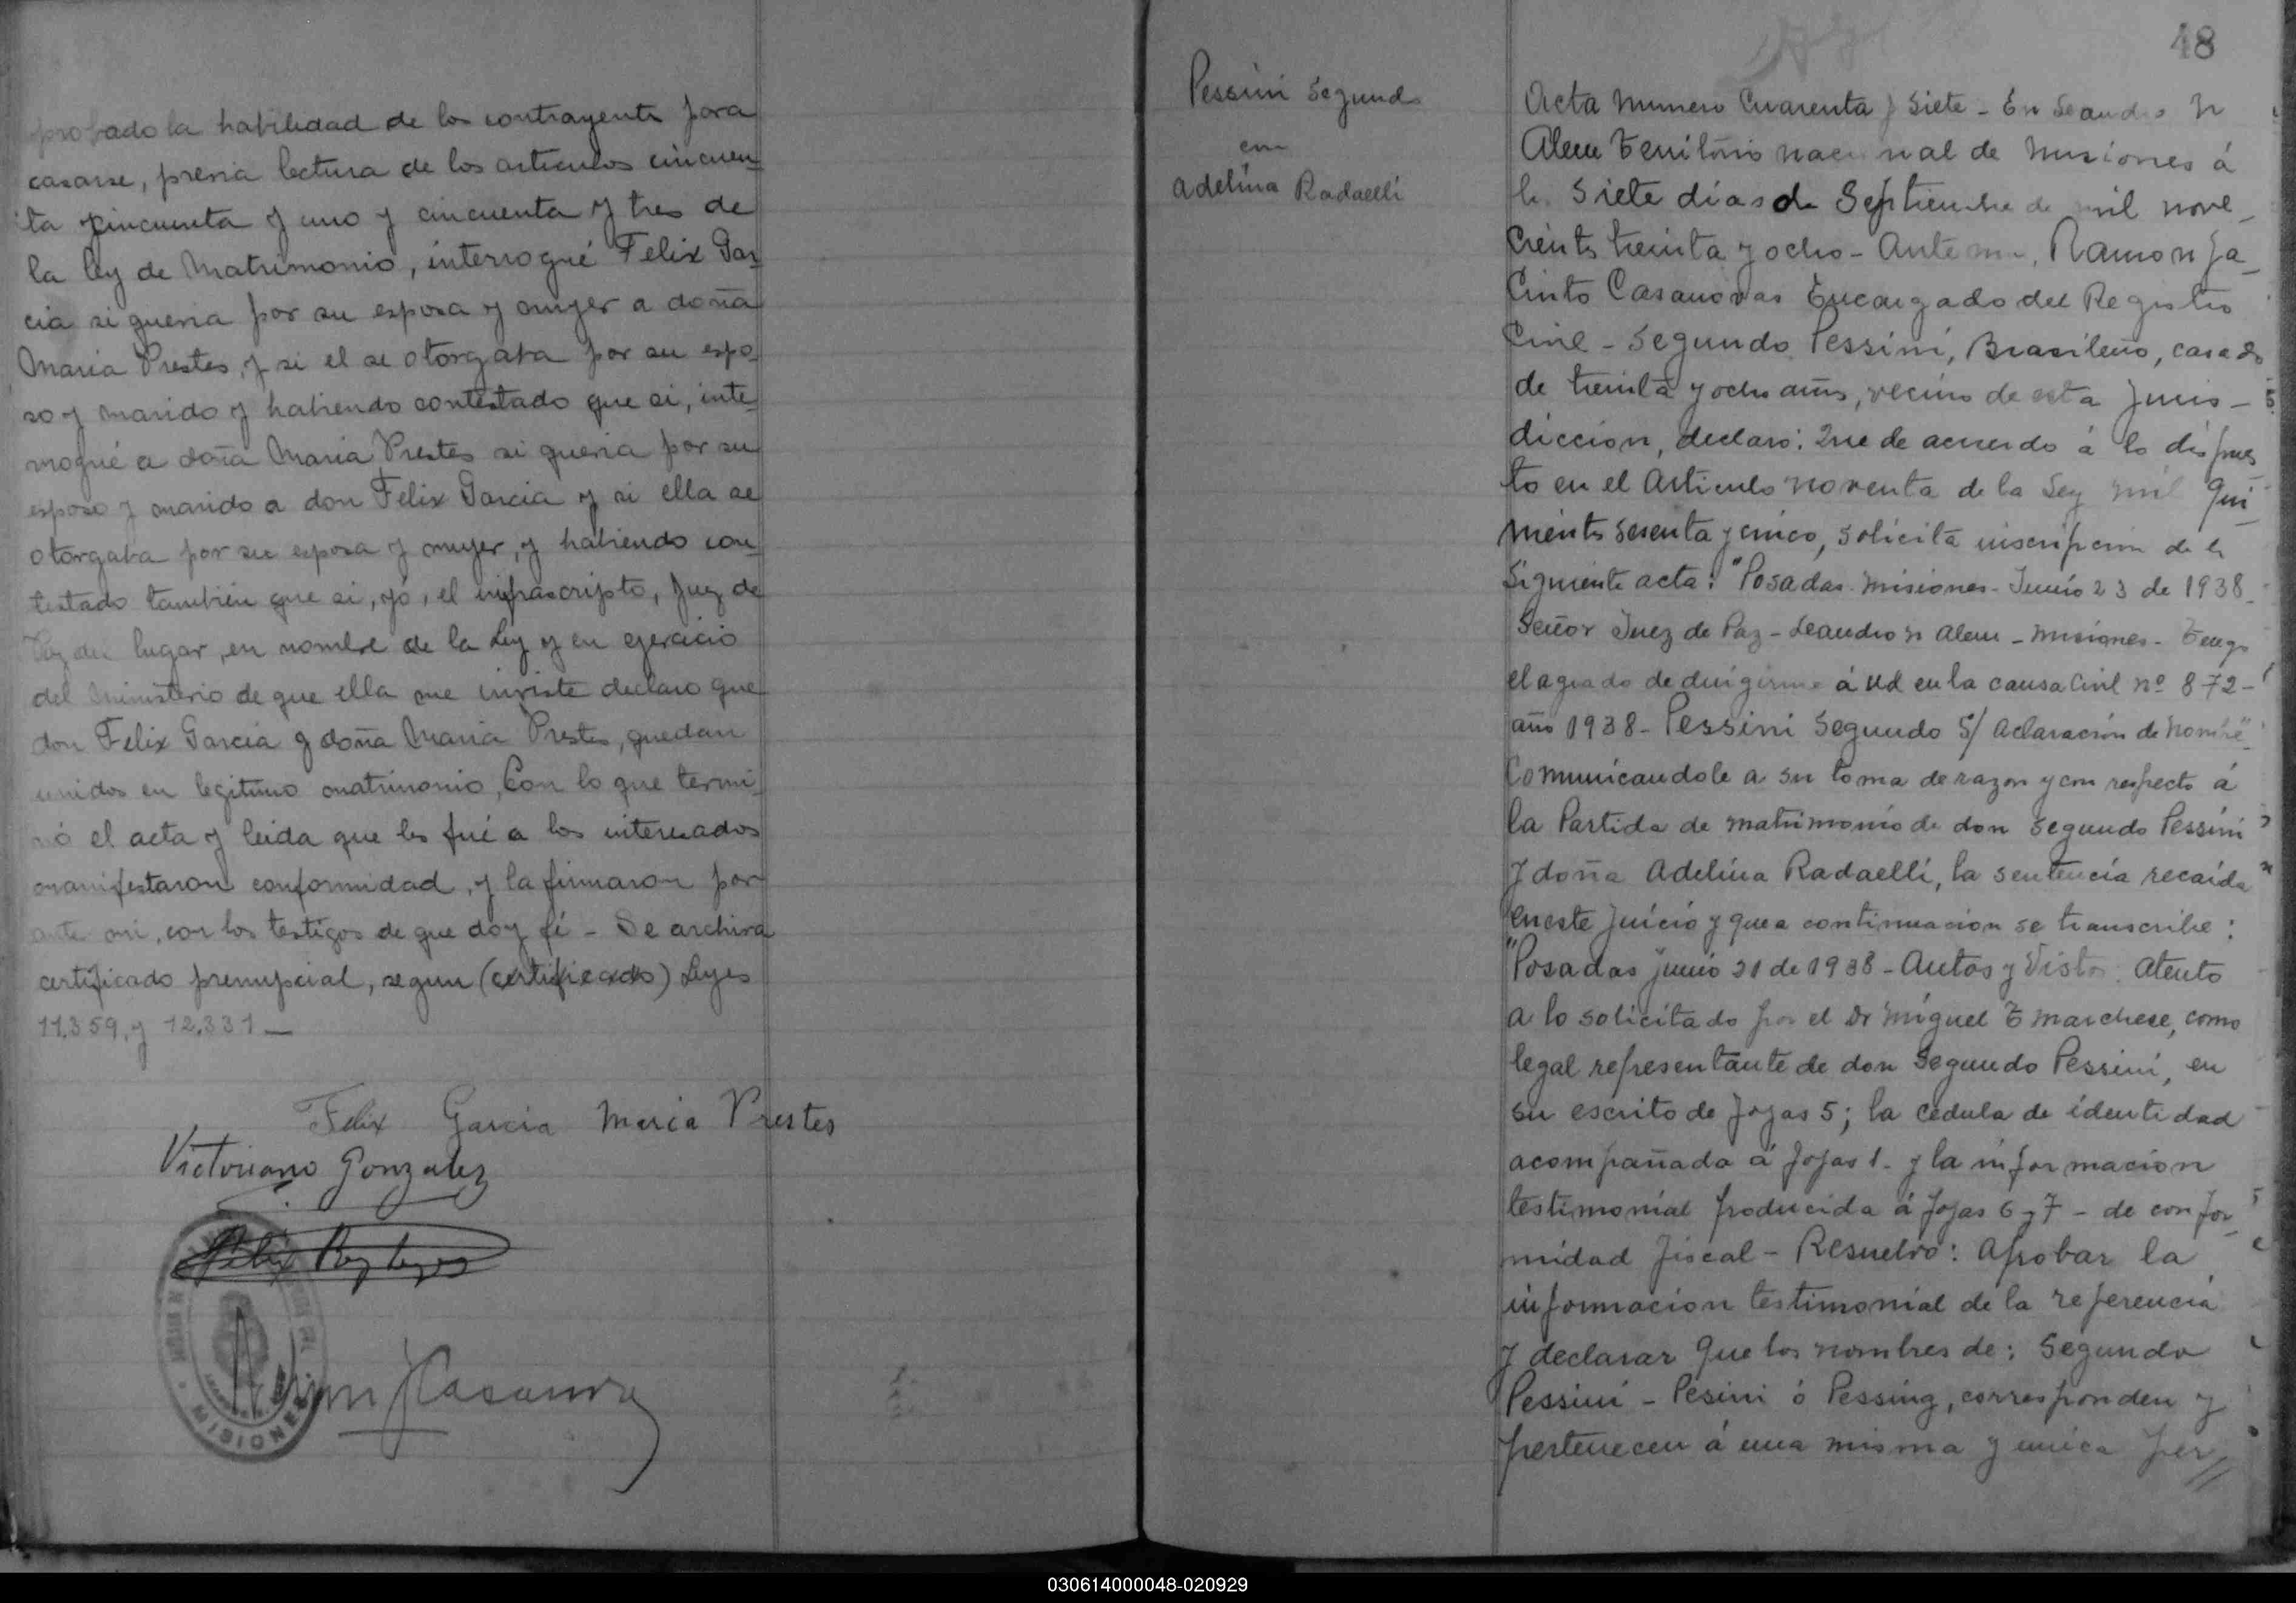 probado la habilidad de los contrayente para
casarse, previa lectura de los articulos cincuen
ta cincuenta y uno y cincuenta y tres de
la ley de Matrimonio, interrogué Felix Gar
cia si queria por su esposa y mujer a doña
Maria Prestes, y si el se otorgaba por su espo
so y marido y habiendo contestado que si, inte
rrogué a doña Maria Prestes si queria por su
esposo y marido a don Felix Garcia y si ella se
otorgaba por su esposa y mujer, y habiendo con
testado también que si, yó, el infrascripto, Juez de
Paz del lugar, en nombre de la Ley y en ejercicio
del Ministerio de que ella me inviste declaro que
don Felix Garcia y doña Maria Prestes, quedan
unidos en legitimo matrimonio, Con lo que termi
nó el acta y leida que les fué a los interesados
manifestaron conformidad, y la firmaron por
ante mi, con los testigos de que doy fé - Se archiva
certificado prenupcial, segun (certificado) Leyes
11.359, y 12.331 —
Felix Garcia Maria Prestes
Victoriano Gonzalez
Felix
Casanova
MISIONES
Pessini Segundo
con
Adelina Radaelli
48
Acta Numero Cuarenta y Siete - En Leandro N
Alem Territorio nacional de Misiones á
los Siete dias de Septiembre de mil nove
cientos treinta y ocho - Ante mi, Ramon Ja
cinto Casanovas Encargado del Registro
Civil - Segundo Pessini, Brasileño, casado
de treinta y ocho años, vecino de esta Juris-
diccion, declaró: Que de acuerdo á lo dispues
to en el Articulo noventa de la Ley mil qui
nientos sesenta y cinco, solicita inscripcion de la
siguiente acta: "Posadas. Misiones - Junio 23 de 1938
Señor Juez de Paz - Leandro N Alem - Misiones - Tengo
el agrado de dirigirme á Ud en la causa Civil nº 872-
año 1938 - Pessini Segundo S/ Aclaración de Nombre"
Comunicandole a su toma de razon y con respecto á
la Partida de matrimonio de don Segundo Pessini
y doña Adelina Radaelli, la sentencia recaida
en este Juicio y que a continuacion se transcribe:
"Posadas Junio 21 de 1938 - Autos y Vistos: Atento
a lo solicitado por el Dr Miguel T Marchese, como
legal representante de don Segundo Pessini, en
su escrito de fojas 5; la cedula de identidad
acompañada á fojas 1. y la informacion
testimonial producida á fojas 6 y 7 - de confor
midad fiscal - Resuelvo: Aprobar la
informacion testimonial de la referencia
y declarar que los nombres de: Segundo
Pessini - Pesini ó Pessing, corresponden y
pertenecen á una misma y unica per//
030614000048-020929